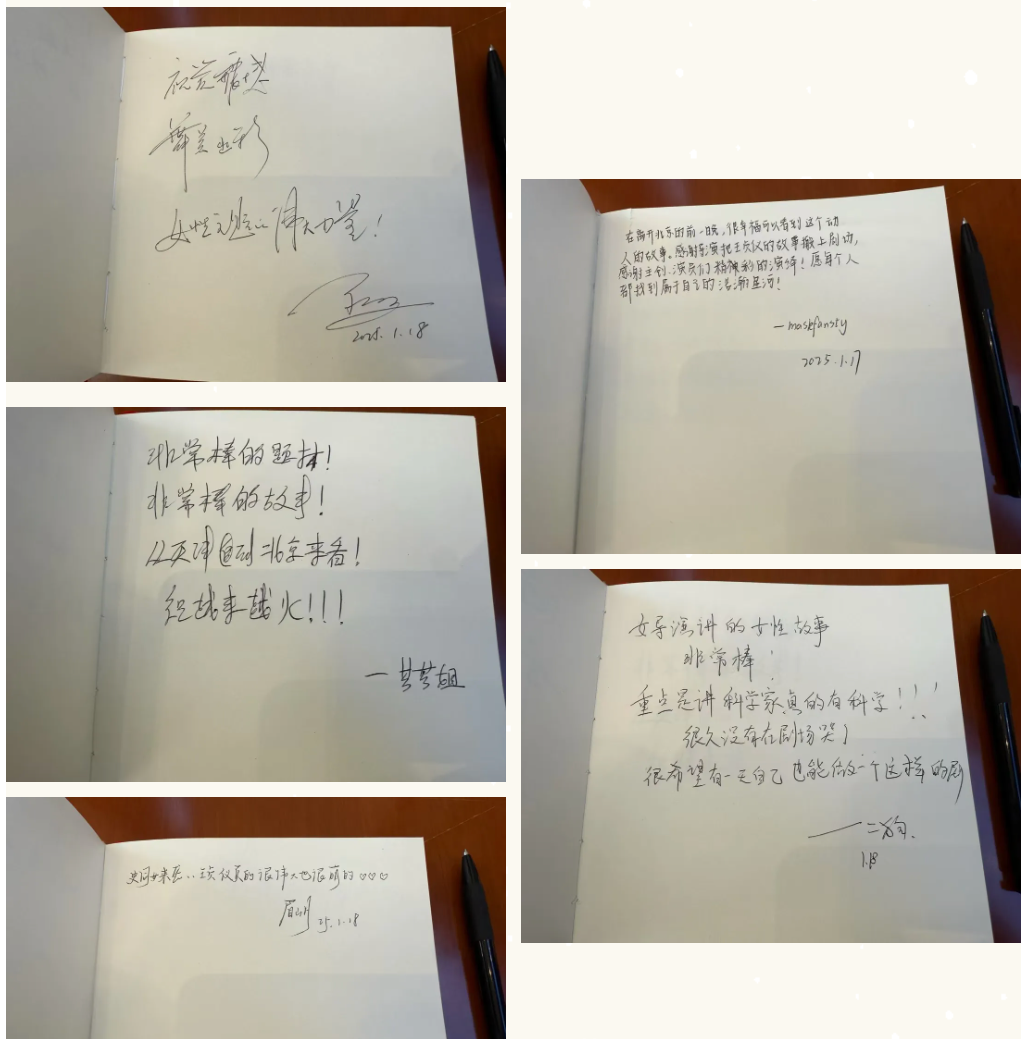 女性
伟大力量!
2025.1.18
非常棒的题材!
非常棒的故事!
从天津 到北京来看!
祝越来越火!!!
—芸芸姐
王贞仪真的很伟大也很萌的♡♡♡
25.1.18
在离开北京的前一晚,很幸福可以看到这个动
人的故事。感谢导演把王贞仪的故事搬上剧场,
感谢主创、演员们精彩的演绎!愿每个人
都找到属于自己的浩瀚星河!
2025.1.17
女导演讲的女性故事
非常棒!
重点是讲科学家真的有科学!!!
很久没有在剧场哭了
很希望有一天自己也能做一个这样的剧
——二狗.
1.18